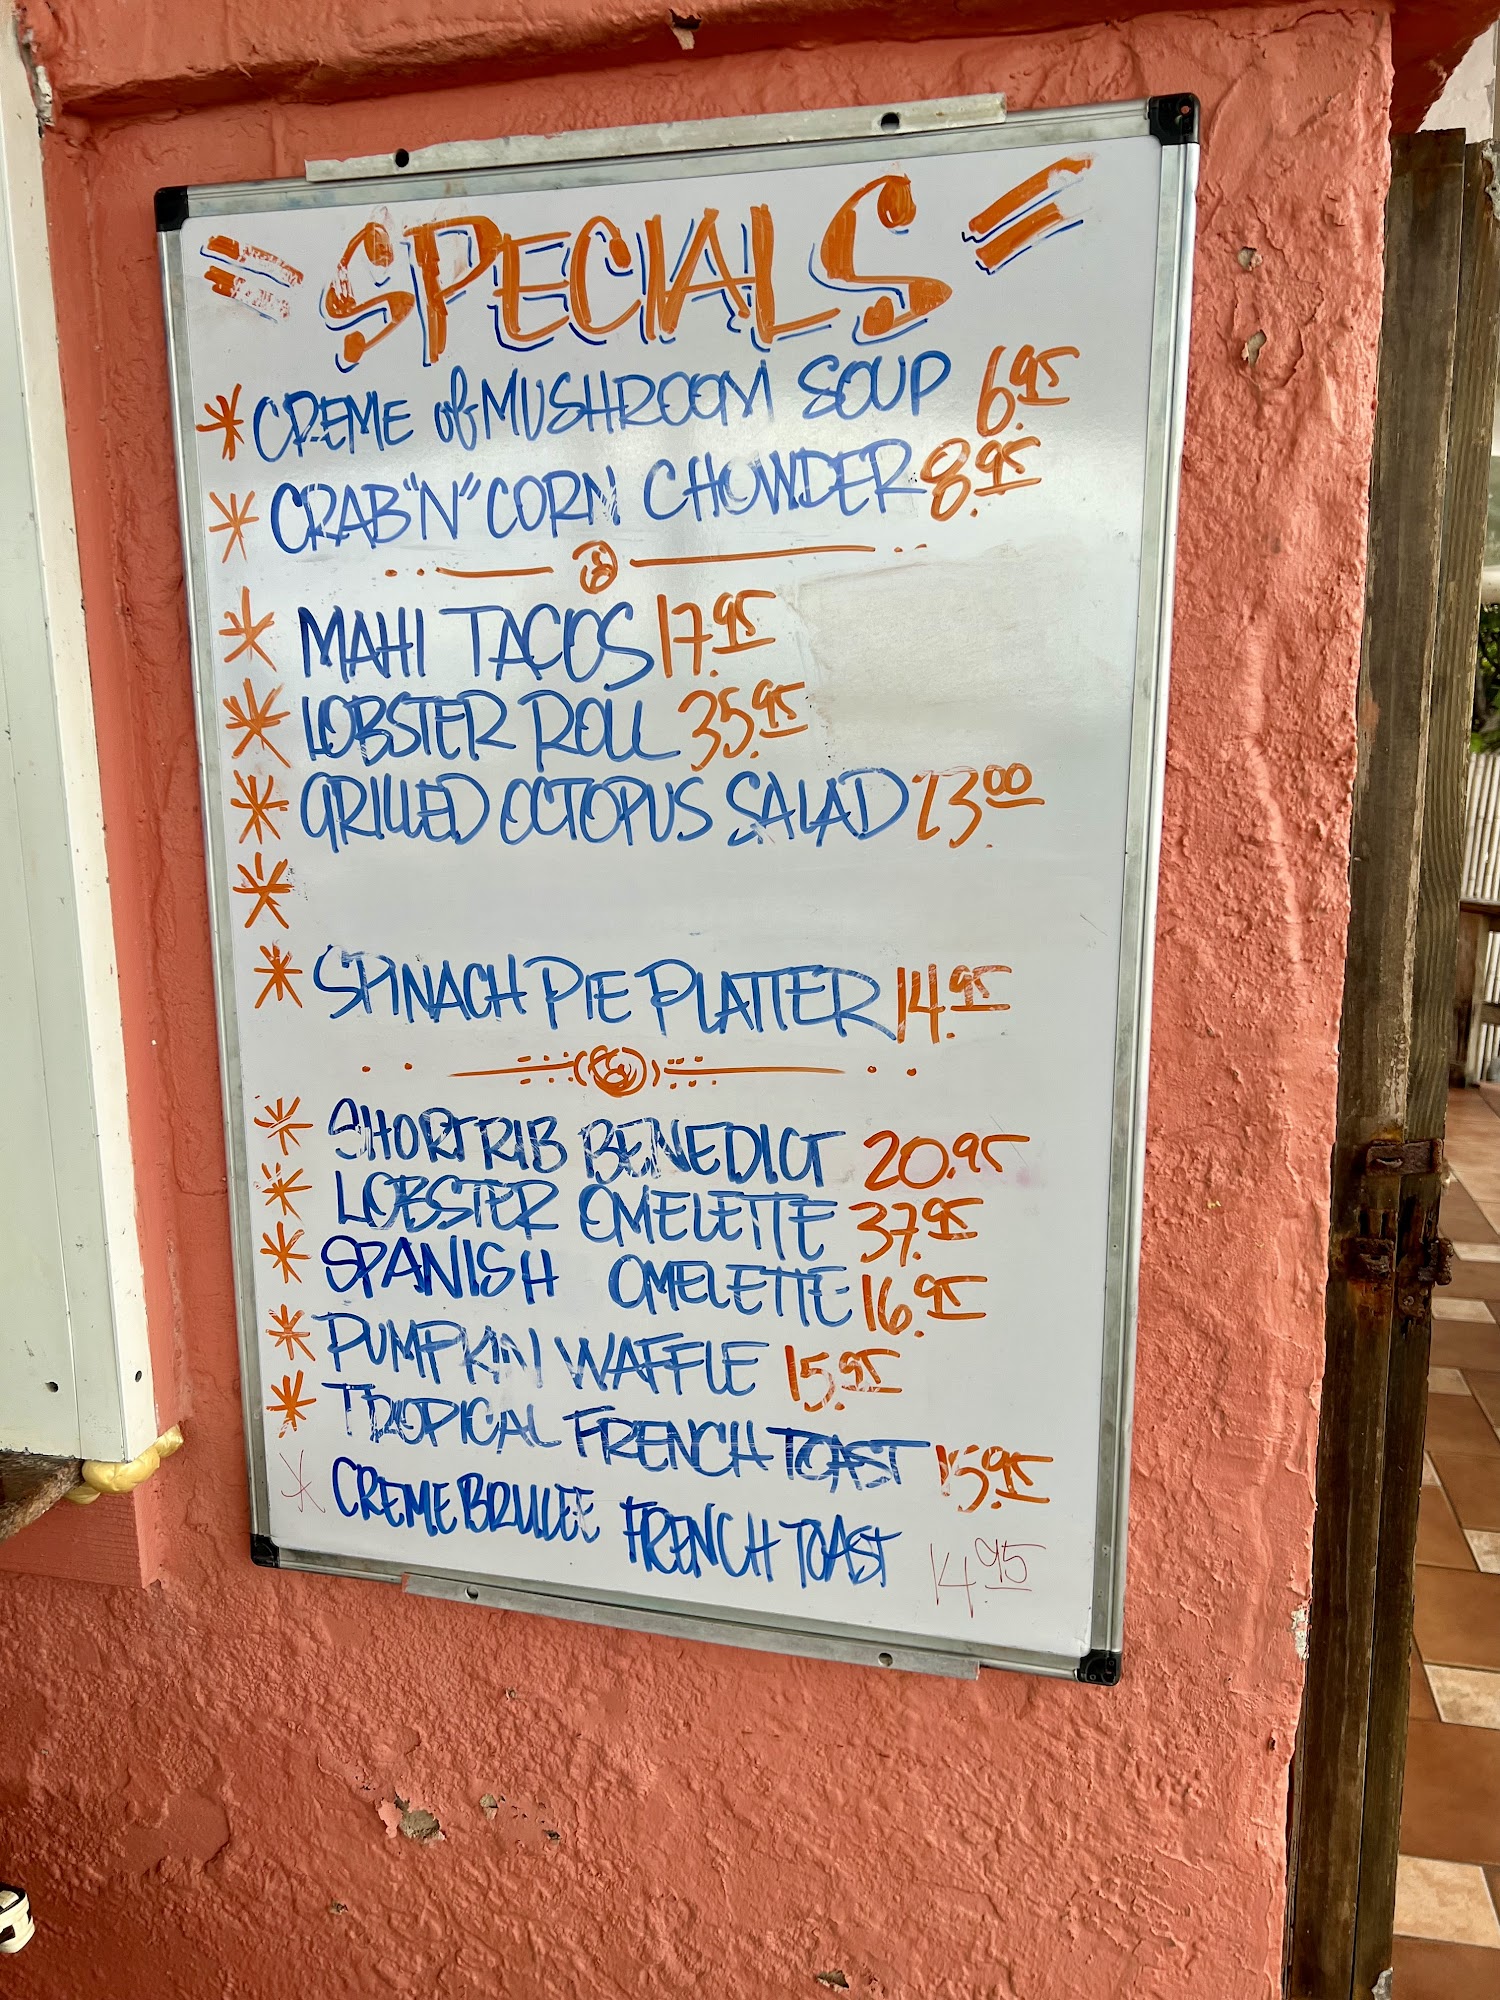 = SPECIALS =
* CREME of MUSHROOM SOUP 6.95
* CRAB "N" CORN CHOWDER 8.95
* MAHI TACOS 17.95
* LOBSTER ROLL 35.95
* GRILLED OCTOPUS SALAD 23.00
*
* SPINACH PIE PLATTER 14.95
* SHORT RIB BENEDICT 20.95
* LOBSTER OMELETTE 37.95
* SPANISH OMELETTE 16.95
* PUMPKIN WAFFLE 15.95
* TROPICAL FRENCH TOAST 15.95
* CREME BRULEE FRENCH TOAST 14.95